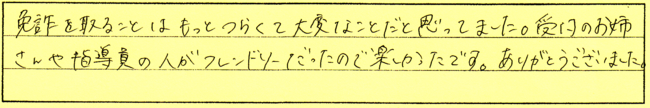 免許を取ることはもっとつらくて大変なことだと思ってました。受付のお姉
さんや指導員の人がフレンドリーだったので楽しかったです。ありがとうございました。